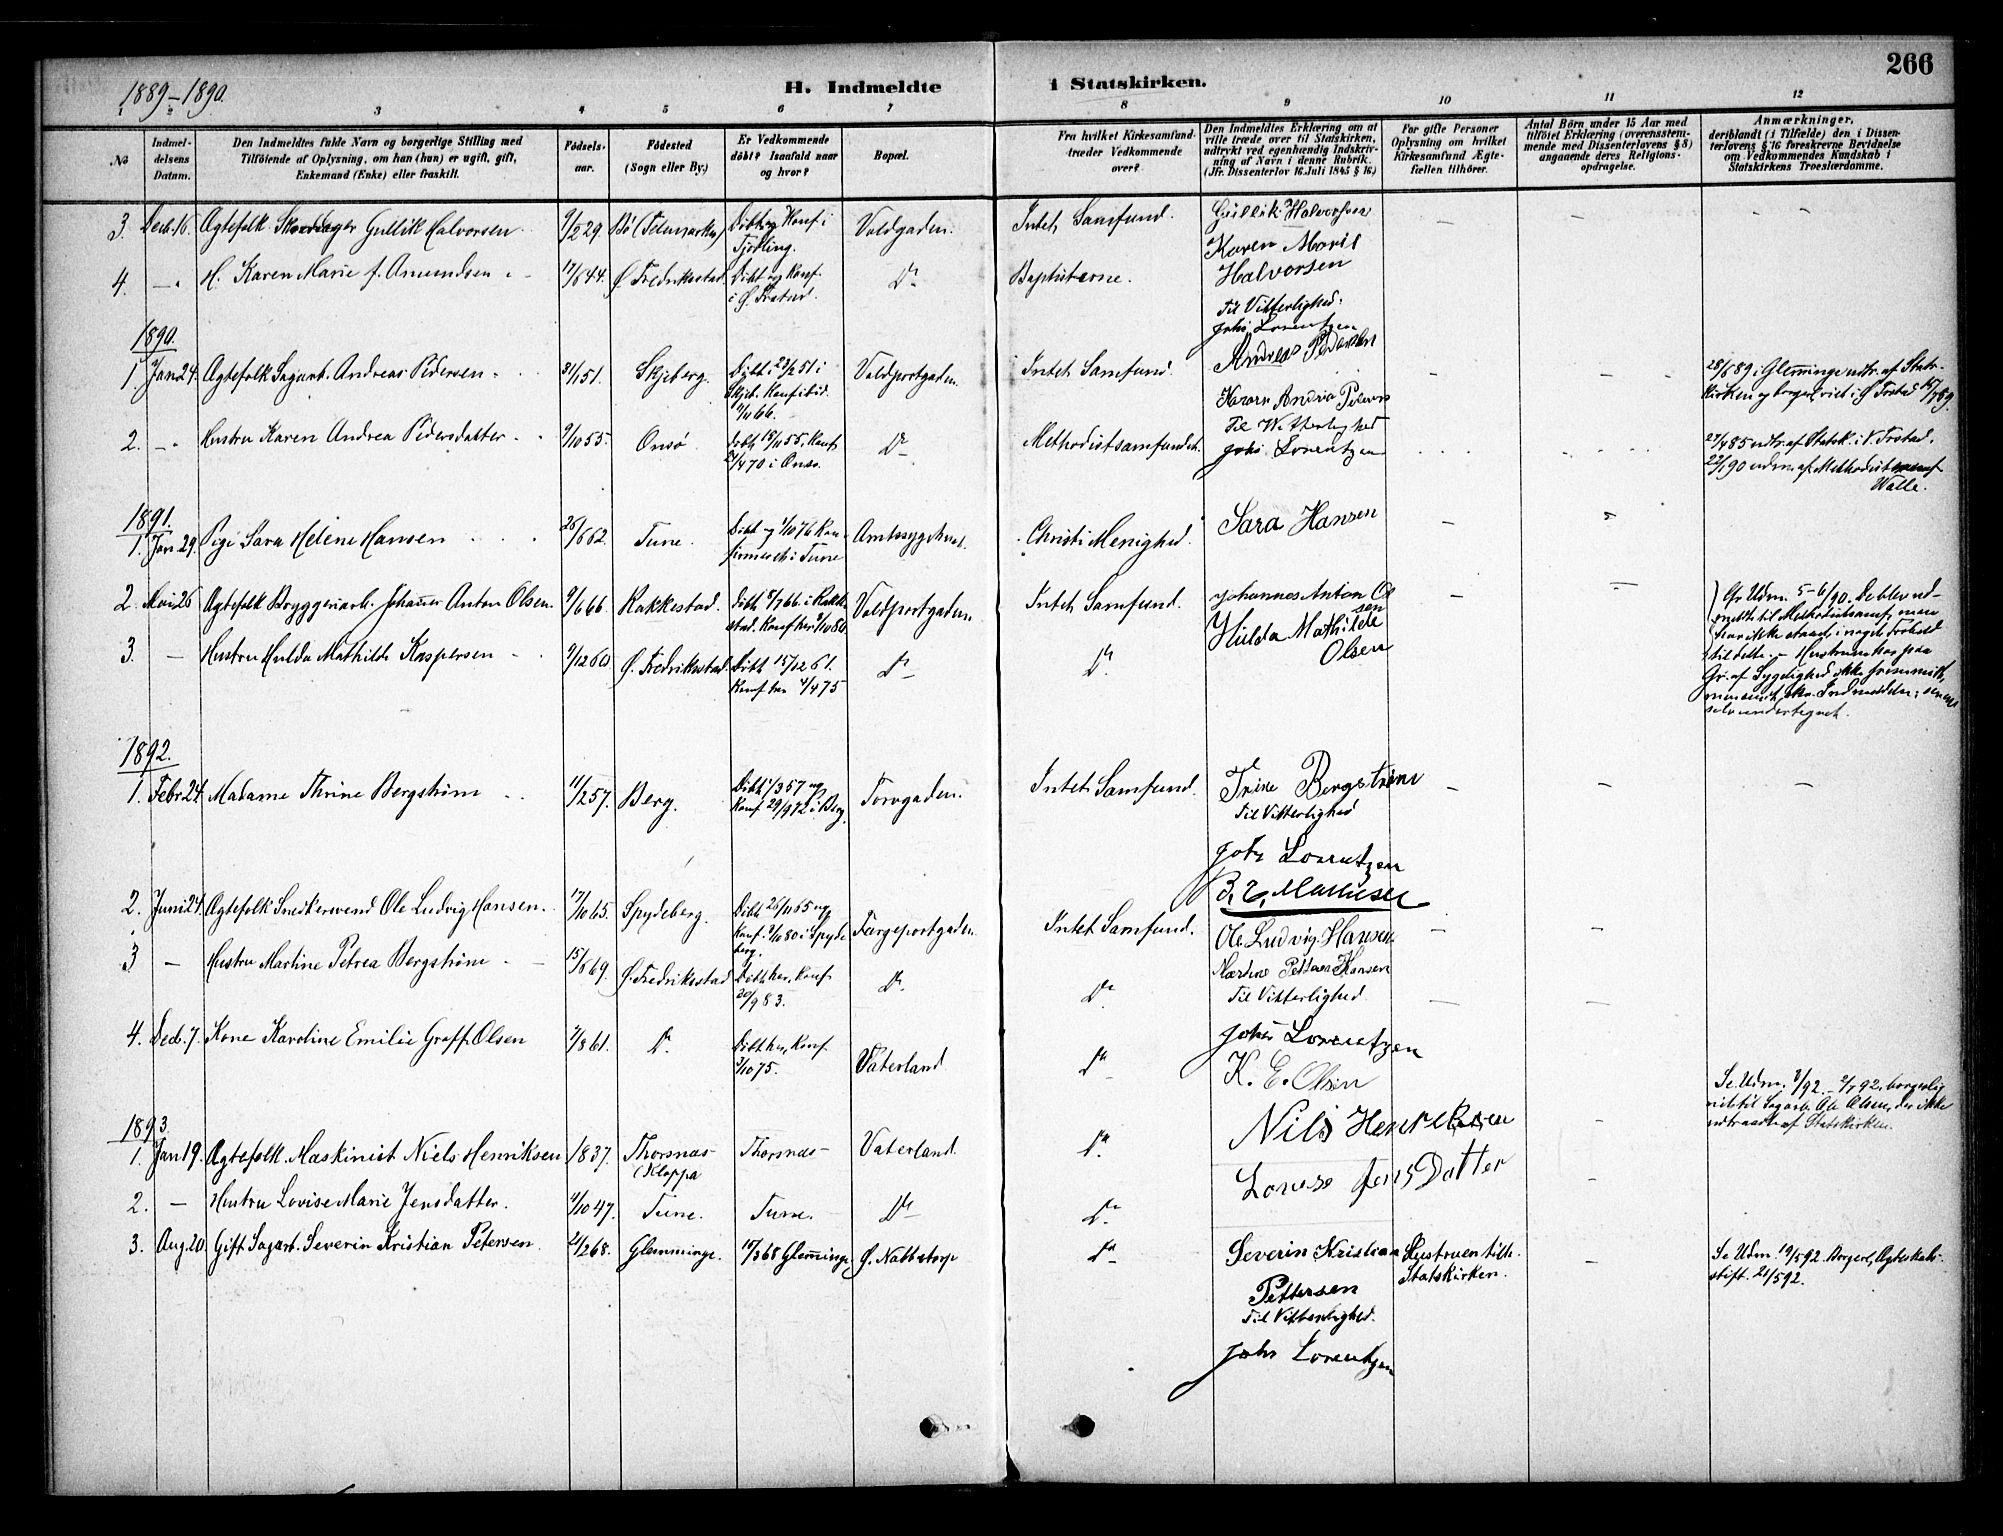 266
1889-1890.
H. Indmeldte i Statskirken.
1 2 3 4 5 6 7 8 9 10 11 12
No
Indmel-
delsens
Datum.
Den Indmeldtes fulde Navn og borgerlige Stilling med
Tilföiende af Oplysning, om han (hun) er ugift, gift,
Enkemand (Enke) eller fraskilt.
Födsels-
aar.
Födested
(Sogn eller By.)
Er Vedkommende
döbt? Isaafald naar
og hvor?
Bopæl.
Fra hvilket Kirkesamfund
træder Vedkommende
over?
Den Indmeldtes Erklæring om at
ville træde over til Statskirken,
udtrykt ved egenhændig Indskriv-
ning af Navn i denne Rubrik.
(Jfr. Dissenterlov 16 Juli 1845 § 16.)
For gifte Personer
Oplysning om hvilket
Kirkesamfund Ægte-
fællen tilhörer.
Antal Börn under 15 Aar med
tilföiet Erklæring (overensstem-
mende med Dissenterlovens § 8)
angaaende deres Religions-
opdragelse.
Anmærkninger,
deriblandt (i Tilfælde) den i Dissen-
terlovens § 16 foreskrevne Bevidnelse
om Vedkommendes Kundskab i
Statskirkens Troeslærdomme.
3. Decb. 16. Ægtefolk Gullik Halvorsen 9/2 29. Bö (Telemarken) Döbt og Konf i Tjölling. Voldgaden. Intet Samfund. Gullik Halvorsen
4. — H. Karen Marie f. Amundsen 17/6 44. Ø. Fredrikstad. Döbt og Konf. i Ø. Frstad. Do Baptisterne. Karen Marie
Halvorsen
Til Vitterlighed:
Johs Lorentzen
1890.
1. Jan 24. Ægtefolk Sagarb. Andreas Pedersen 31/1 51. Skjeberg. Döbt 23/2 51 i Skjeb. Konf ibid. Voldportgaden. Intet Samfund. Andreas Pedersen
28/6 89 i Glemminge udtr. af Stats-
kirken og borgerl. viet i Ø. Frstad
2. — Hustru Karen Andrea Pedersdatter 9/10 55. Onsö. Döbt 18/11 55, Konf. 24/4 70 i Onsö. Do Methodistsamfundet. Karen Andrea
Til Vitterlighed
Johs Lorentzen
27/4 85 udtr. af Statsk. i V. Frstad.
22/1 90 udm. af Methodistsamf
Walle.
1891.
1. Jan. 29. Pige Sara Helene Hansen 26/6 62. Tune. Döbt og 1/10 76 Kon-
firmeret i Tune Amtssygehuset. Christi Menighed. Sara Hansen
2. Mai 26 Ægtefolk Bryggeriarb. Johannes Anton Olsen. 9/6 66. Rakkestad. Döbt 8/7 66 i Rakke-
stad. Konf her Voldportgaden. Intet Samfund. Johannes Anton Ol
sen
3. — Hustru Hulda Mathilde Kaspersen 9/12 60. Ø. Fredrikstad. Döbt 15/12 61. Konf her 4/4 75 Do Do Hulda Mathilde
Olsen
Gr. Udm. 5-6/90. De blev ud-
meldt til Methodistsamf., men
har ikke staaet i noget Forhold
til dette. - Hustruen har paa
Gr. af Sygelighed ikke fremmödt,
men Indmeldelse,
selv undertegnet.
1892.
1. Febr. 24. Madame Thrine Bergström 11/2 57. Berg. Döbt 1/3 57 og Konf 29/9 72 i Berg. Torvgaden. Intet Samfund. Trine Bergström
Til Vitterlighed
Johs Lorentzen
2. Juni 24. Ægtefolk Snedkersvend Ole Ludvig Hansen. 17/10 65. Spydeberg. Döbt 26/11 65 og Konf. 3/10 80 i Spyde-
berg. Færgeportgaden Intet Samfund. Ole Ludvig Hansen
3 — Hustru Martine Petrea Bergström 15/6 69. Ø. Fredrikstad Döbt her, Konf. 30/9 83. Do Do Martine Petrea Hansen
Til Vitterlighed.
Johs Lorentzen
4. Decb. 7. Kone Karoline Emilie Graff Olsen 7/8 61. Do Döbt her, Konf. 3/10 75. Vaterland Do K. E. Olsen
Se Udm. borgerlig
viet til Sagarb. Ole Olsen, der ikke
udtraadt af Statskirken.
1893.
1. Jan 19. Ægtefolk Maskinist Niels Henriksen 1837. Thorsnæs (Kloppa Thorsnæs Vaterland. Do Nils Henriksen
2. — Hustru Lovise Marie Jensdatter. 4/10 47. Tune. Tune. Do Do Louise Jens Datter
3. Aug. 20. Gift Sagarb. Severin Kristian Petersen 21/2 68. Glemminge. 15/3 68 Glemminge Ø. Nabbetorp Do Severin Kristian
Pettersen
Til Vitterlighed.
Johs Lorentzen
Hustruen tilh.
Statskirken.
Se Udm. 19/5 92. Borgerl. Ægteskabs-
stift. 21/5 92.